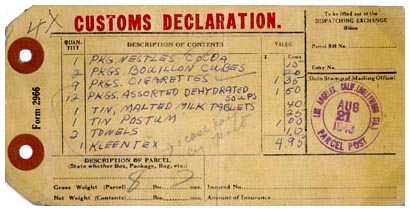 4X
CUSTOMS DECLARATION.
To be filled out at the
DISPATCHING EXCHANGE
Office
QUAN-
TITY
DESCRIPTION OF CONTENTS
VALUE
Parcel Bill No.
$ Cents
1 PKG. NESTLES COCOA 15
2 PKGS. BOUILLON CUBES 20
9 PKGS CIGARETTES 35
12 PKGS. ASSORTED DEHYDRATED SOUPS 1 50
1 TIN, MALTED MILK TABLETS 40
1 TIN POSTUM 25
2 TOWELS 1 00
1 KLEENTEX 10
4.95
Entry No.
Date Stamp of Mailing Office
LOS ANGELES, CALIF.
AUG
21
1943
PARCEL POST
Form 2966
DESCRIPTION OF PARCEL
(State whether Box, Package, Bag, etc.)
Gross Weight (Parcel) 8 lbs. 2 ozs.
Insured No.
Net Weight (Contents) lbs. ozs.
Amount of Insurance